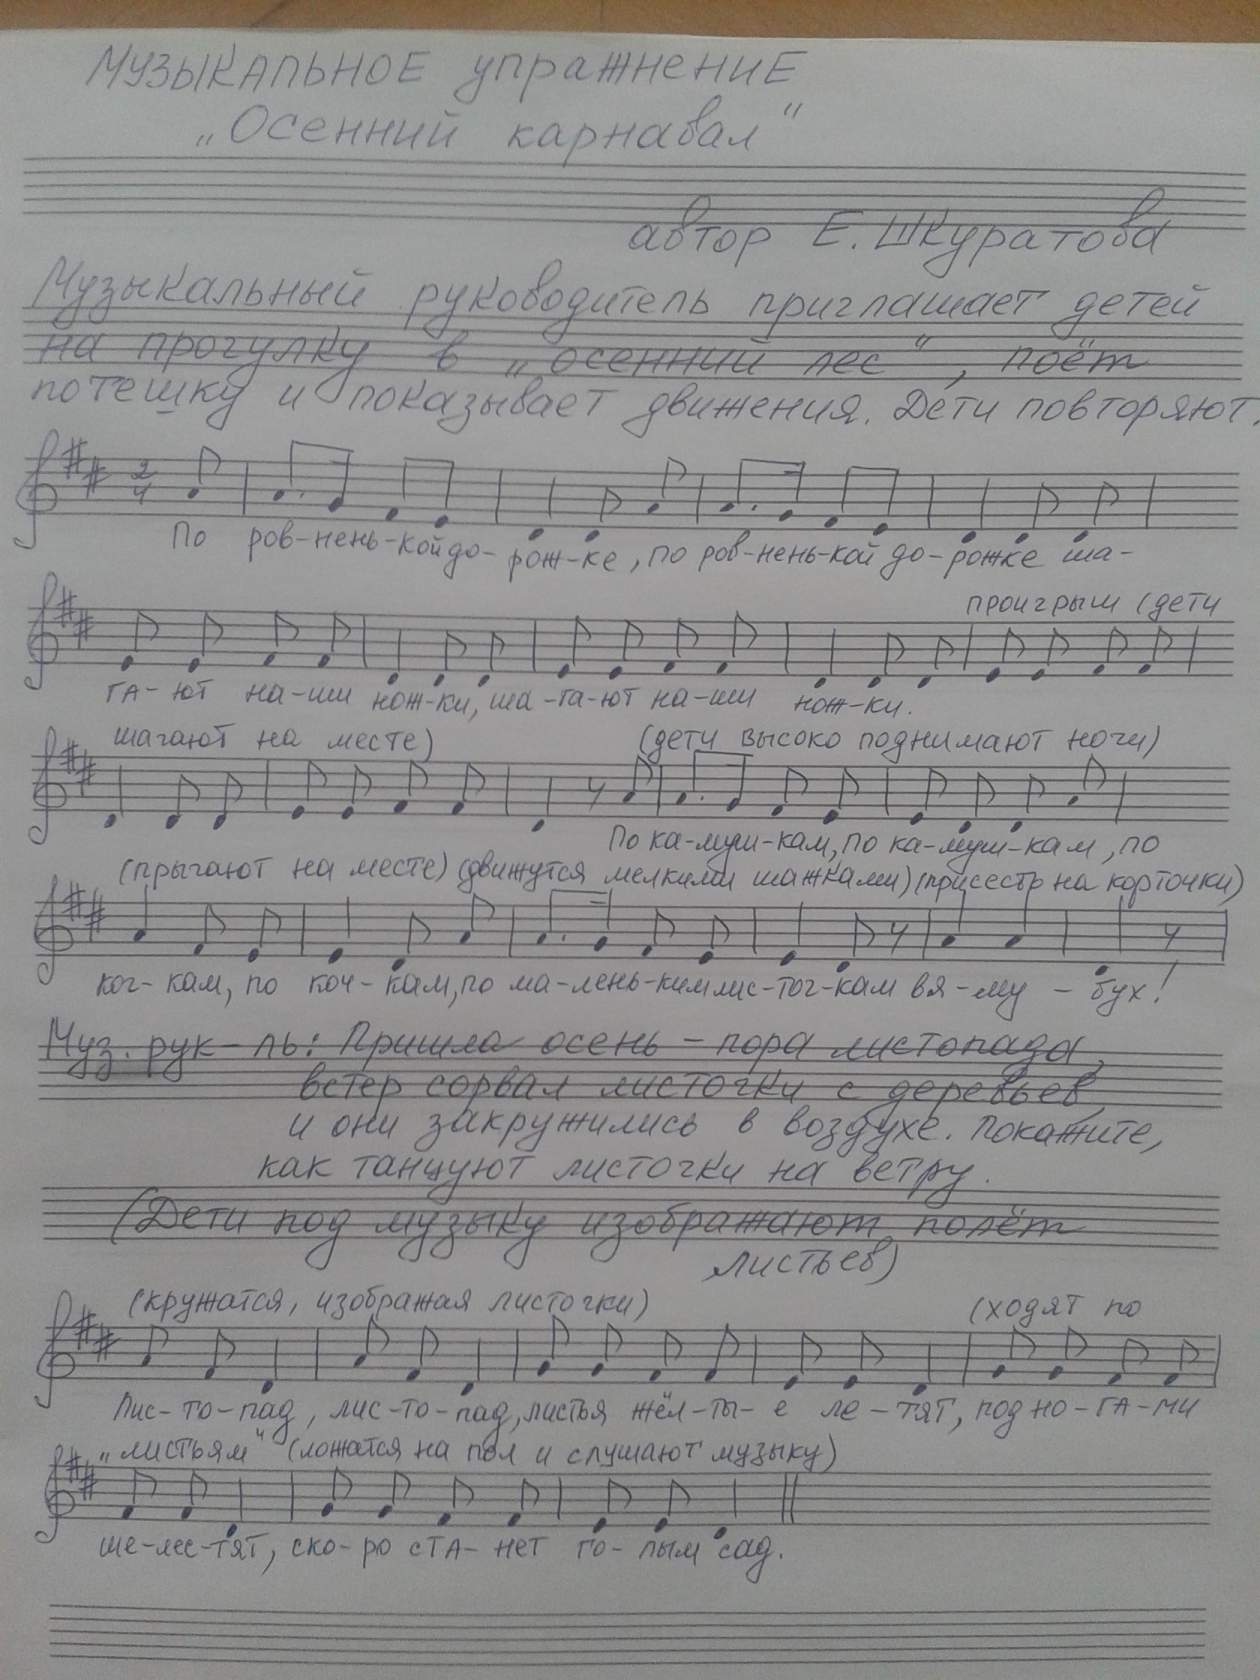 МУЗЫКАЛЬНОЕ упражнениЕ
„Осенний карнавал“
автор Е. Шкуратова
Музыкальный руководитель приглашает детей
на прогулку в „осенний лес“, поёт
потешку и показывает движения. Дети повторяют.
2/4
По ров-нень-кой до-рож-ке, по ров-нень-кой до-рожке ша-
проигрыш (дети
га-ют на-ши нож-ки, ша-га-ют на-ши нож-ки.
шагают на месте) (дети высоко поднимают ночи)
По ка-муш-кам, по ка-муш-кам, по
(прыгают на месте) (движутся мелкими шажками) (присестр на корточки)
коч-кам, по коч-кам, по ма-лень-ким лис-точ-кам в я-му - бух!
Муз. рук-ль: Пришла осень - пора листопада,
ветер сорвал листочки с деревьев
и они закружились в воздухе. Покажите,
как танцуют листочки на ветру.
(Дети под музыку изображают полёт
листьев)
(кружатся, изображая листочки) (ходят по
Лис-то-пад, лис-то-пад, листья жёл-ты-е ле-тят, под но-га-ми
„листьям“ (ложатся на пол и слушают музыку)
ше-лес-тят, ско-ро ста-нет го-лым сад.